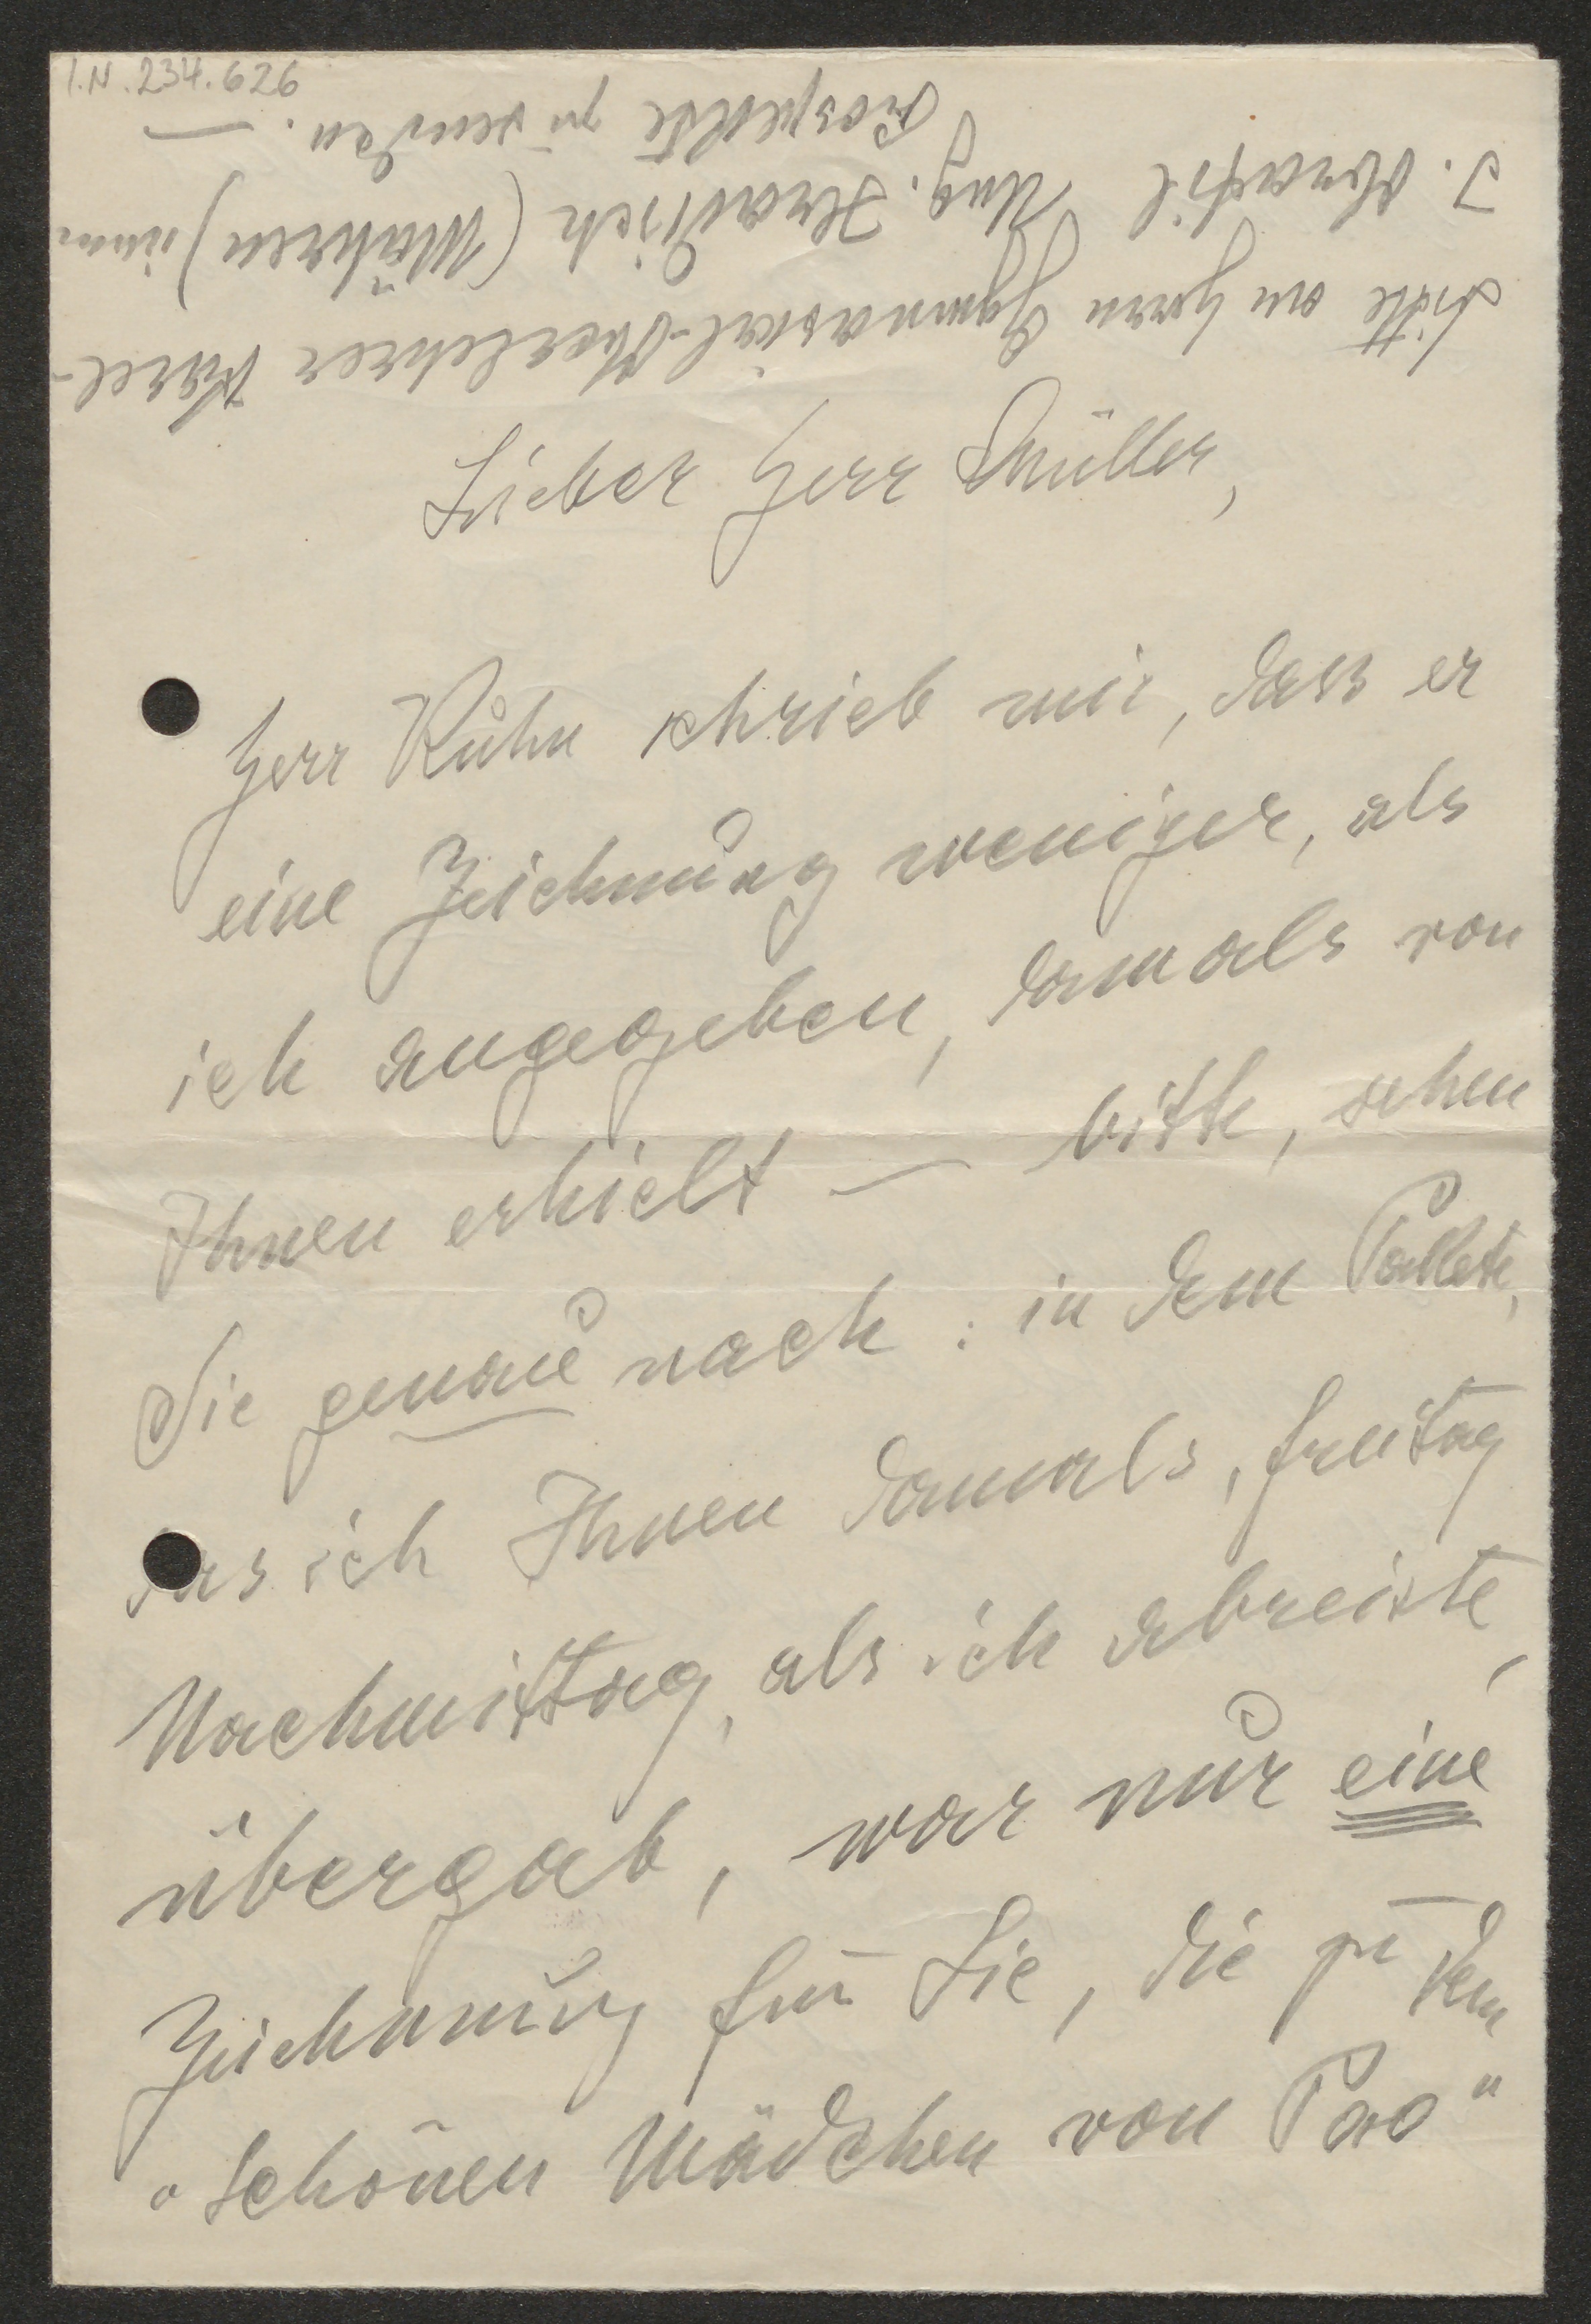 I.N. 234.626
Lieber Herr Müller,
Herr Kuhn schrieb mir, dass er
eine Zeichnung weniger, als
ich angegeben, damals von
Ihnen erhielt — bitte, sehen
Sie genau nach: in dem Pallete,
das ich Ihnen damals, freitag
Nachmittag, als ich abreiste,
übergab, war nur eine
Zeichnung für Sie, die zu dem
"schönen Mädchen von Pao"
bitte an Herrn Gymnasial-Oberlehrer Karel
J. Obratil Ung. Hradisch (Mähren)
Prospekte zu senden. —